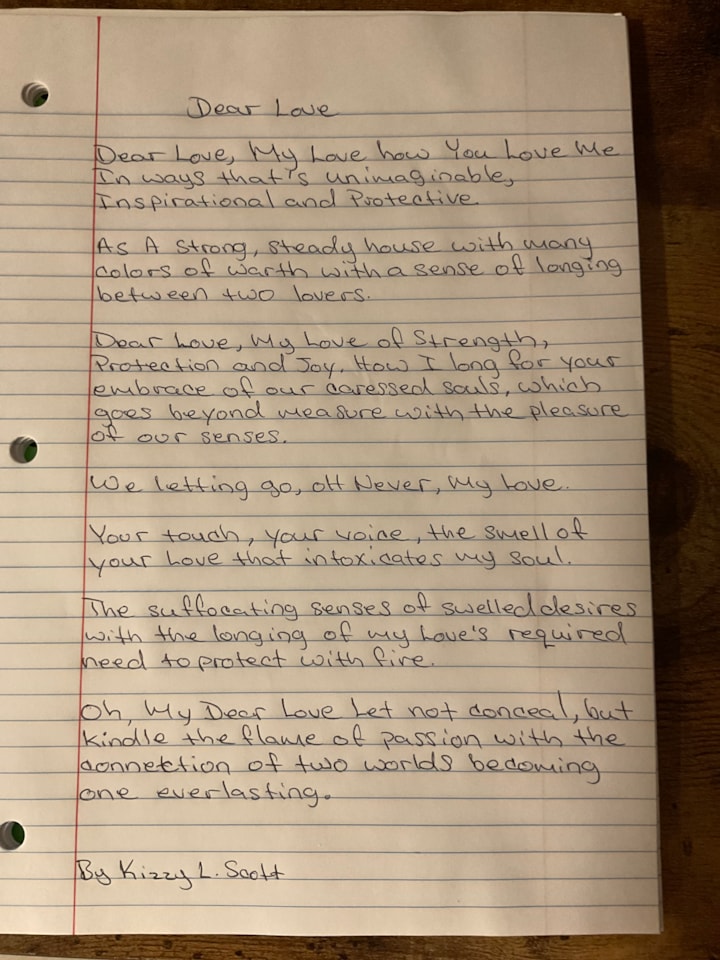 Dear Love
Dear Love, My Love how You Love Me
In ways that's unimaginable,
Inspirational and Protective
As A Strong, steady house with many
colors of warth with a sense of longing
between two lovers.
Dear Love, My Love of Strength,
Protection and Joy. How I long for your
embrace of our caressed souls, which
goes beyond measure with the pleasure
of our senses.
We letting go, oH Never, My Love.
Your touch, your voice, the smell of
your Love that intoxicates my soul.
The suffocating senses of swelled desires
with the longing of my Love's required
need to protect with fire.
Oh, My Dear Love Let not conceal, but
Kindle the flame of passion with the
connection of two worlds becoming
one everlasting.
By Kizzy L. Scott